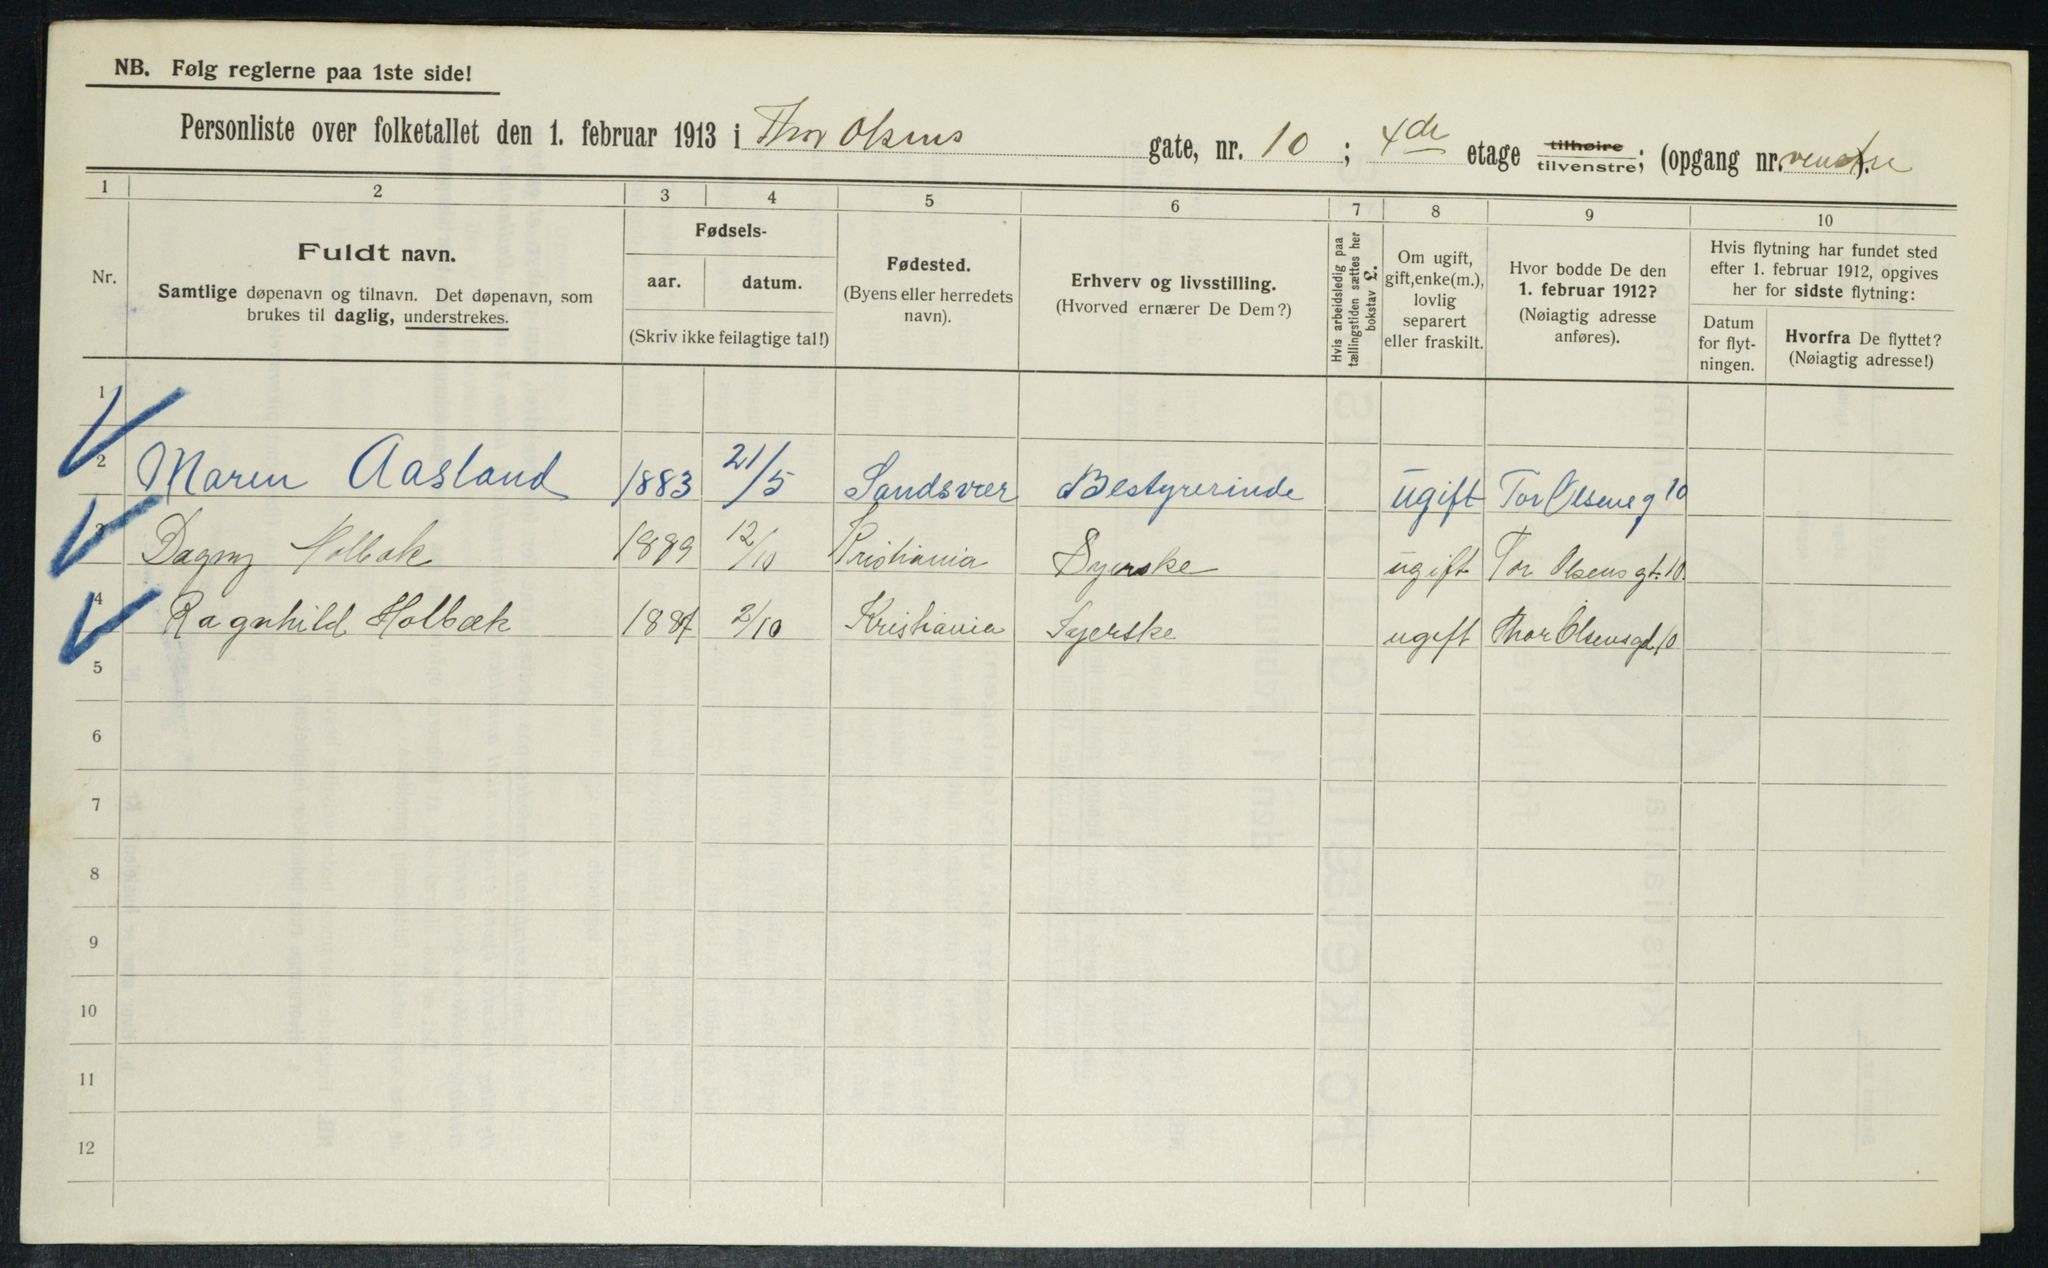 NB. Følg reglerne paa 1ste side!
Personliste over folketallet den 1. februar 1913 i Thor Olsens gate, nr. 10; 4de etage tilhøire tilvenstre; (opgang nr. venstre).
1 2 3 4 5 6 7 8 9 10
Nr.
Fuldt navn.
Samtlige døpenavn og tilnavn. Det døpenavn, som
brukes til daglig, understrekes.
Fødsels-
aar. datum.
(Skriv ikke feilagtige tal!)
Fødested.
(Byens eller herredets
navn).
Erhverv og livsstilling.
(Hvorved ernærer De Dem?)
Hvis arbeidsledig paa
tællingstiden sættes her
bokstav L.
Om ugift,
gift, enke(m.),
lovlig
separert
eller fraskilt.
Hvor bodde De den
1. februar 1912?
(Nøiagtig adresse
anføres).
Hvis flytning har fundet sted
efter 1. februar 1912, opgives
her for sidste flytning:
Datum
for flyt-
ningen.
Hvorfra De flyttet?
(Nøiagtig adresse!)
1
2 Maren Aasland 1883 21/5 Sandsvær Bestyrerinde ugift Tor Olsens g 10
3 Dagny Holbæk 1889 12/10 Kristiania Syerske ugift Tor Olsens gt. 10.
4 Ragnhild Holbæk 1887 2/10 Kristiania Syerske ugift Thor Olsensgd 10
5
6
7
8
9
10
11
12